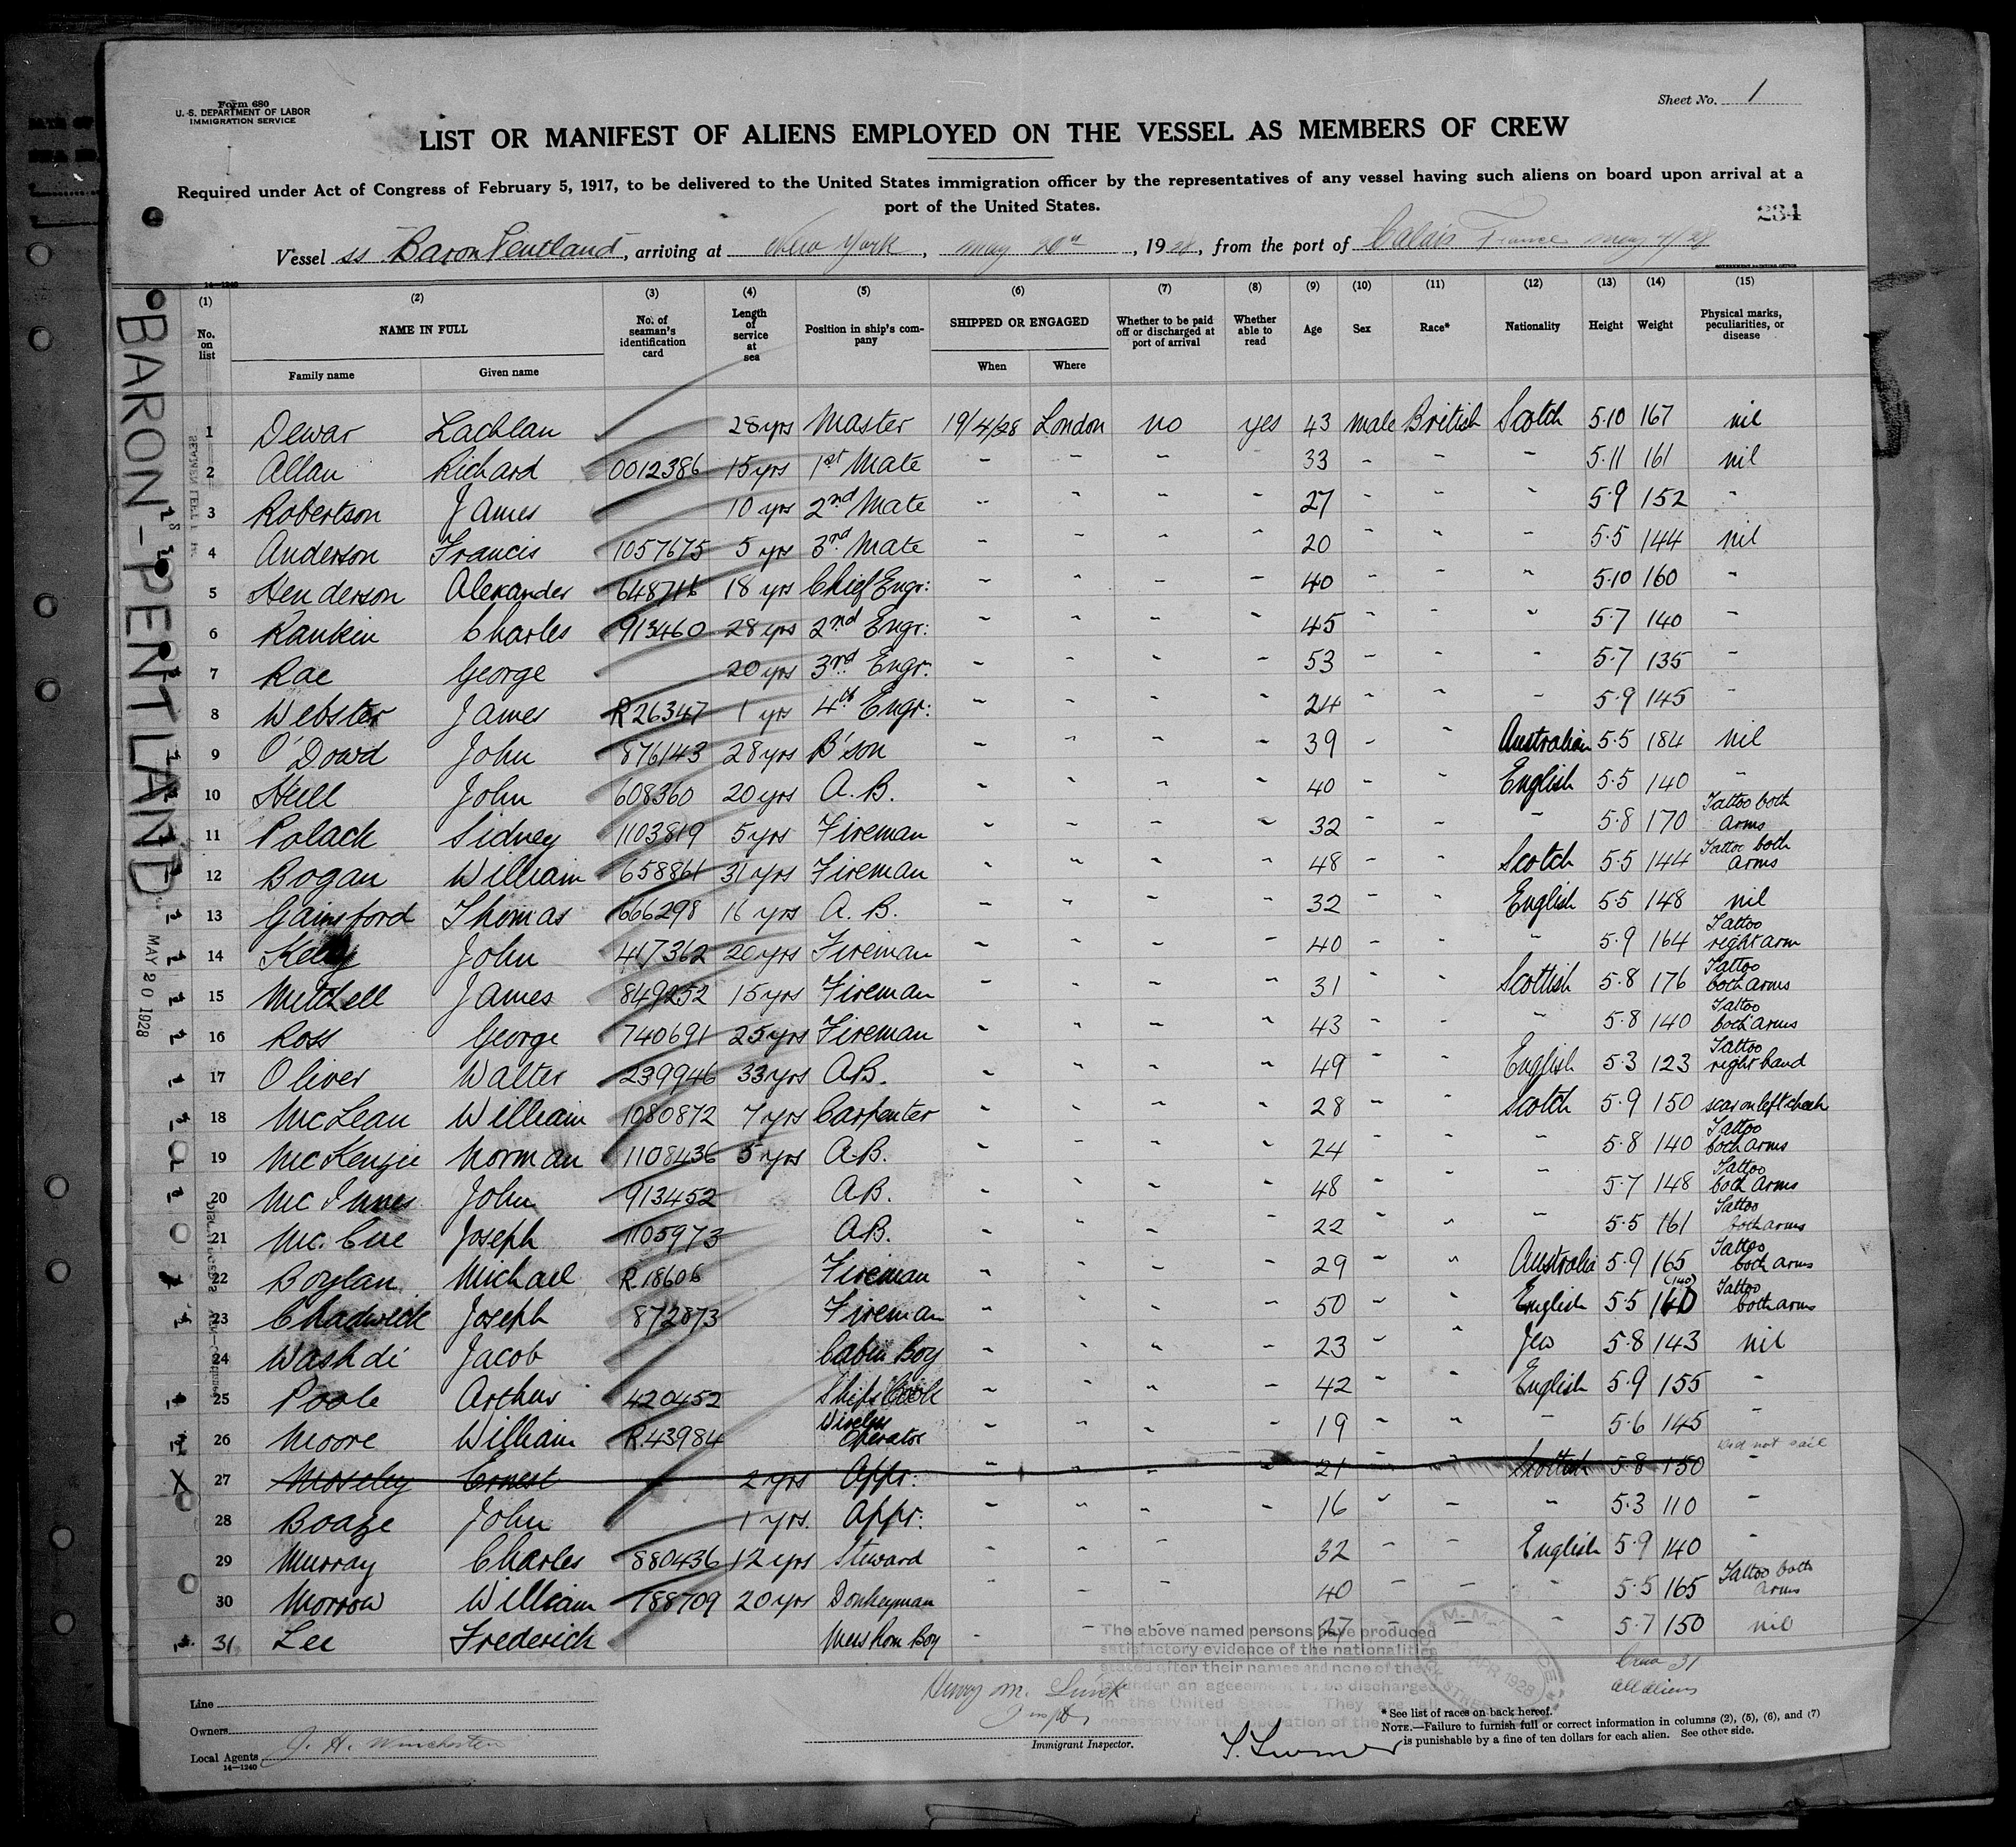 Form 680
U. S. DEPARTMENT OF LABOR
IMMIGRATION SERVICE
Sheet No. 1
LIST OR MANIFEST OF ALIENS EMPLOYED ON THE VESSEL AS MEMBERS OF CREW
Required under Act of Congress of February 5, 1917, to be delivered to the United States immigration officer by the representatives of any vessel having such aliens on board upon arrival at a
port of the United States.
234
Vessel ss Baron Pentland, arriving at New York, may 20th, 1928, from the port of Calais France may 4/28
14—1240
GOVERNMENT PRINTING OFFICE
(1) (2) (3) (4) (5) (6) (7) (8) (9) (10) (11) (12) (13) (14) (15)
No. on list
NAME IN FULL
Family name
Given name
No. of seaman's identification card
Length of service at sea
Position in ship's company
SHIPPED OR ENGAGED
When
Where
Whether to be paid off or discharged at port of arrival
Whether able to read
Age
Sex
Race*
Nationality
Height
Weight
Physical marks, peculiarities, or disease
BARON-PENTLAND
MAY 20 1928
1 Dewar Lachlan 28 yrs Master 19/4/28 London no yes 43 male British Scotch 5.10 167 nil
2 Allan Richard 0012386 15 yrs 1st Mate - - - - 33 - - - 5.11 161 nil
3 Robertson James 10 yrs 2nd Mate - - - - 27 - - - 5.9 152 -
4 Anderson Francis 1057675 5 yrs 3rd Mate - - - - 20 - - - 5.5 144 nil
5 Henderson Alexander 648716 18 yrs Chief Engr: - - - - 40 - - - 5.10 160 -
6 Rankin Charles 913460 28 yrs 2nd Engr: - - - - 45 - - - 5.7 140 -
7 Rae George 20 yrs 3rd Engr: - - - - 53 - - - 5.7 135 -
8 Webster James R26347 1 yrs 4th Engr: - - - - 24 - - - 5.9 145 -
9 O'Dowd John 876143 28 yrs B'son - - - - 39 - - Australian 5.5 184 nil
10 Hull John 608360 20 yrs A.B. - - - - 40 - - English 5.5 140 -
11 Polack Sidney 1103819 5 yrs Fireman - - - - 32 - - - 5.8 170 Tattoo both arms
12 Bogan William 658861 31 yrs Fireman - - - - 48 - - Scotch 5.5 144 Tattoo both arms
13 Gainsford Thomas 666298 16 yrs A.B. - - - - 32 - - English 5.5 148 nil
14 Kelly John 417362 20 yrs Fireman - - - - 40 - - - 5.9 164 Tattoo right arm
15 Mitchell James 849252 15 yrs Fireman - - - - 31 - - Scottish 5.8 176 Tattoo both arms
16 Ross George 740691 25 yrs Fireman - - - - 43 - - - 5.8 140 Tattoo both arms
17 Oliver Walter 239946 33 yrs A.B. - - - - 49 - - English 5.3 123 Tattoo right hand
18 McLean William 1080872 7 yrs Carpenter - - - - 28 - - Scotch 5.9 150 scar on left cheek
19 McKenzie Norman 1108436 5 yrs A.B. - - - - 24 - - - 5.8 140 Tattoo both arms
20 McInnes John 913452 A.B. - - - - 48 - - - 5.7 148 Tattoo both arms
21 Mc.Cue Joseph 1105973 A.B. - - - - 22 - - - 5.5 161 Tattoo both arms
22 Boylan Michael R.18606 Fireman - - - - 29 - - Australia 5.9 165 Tattoo both arms
23 Chadwick Joseph 872873 Fireman - - - - 50 - - English 5.5 140 (140) Tattoo both arms
24 Washdi Jacob Cabin Boy - - - - 23 - - Jew 5.8 143 nil
25 Poole Arthur 420452 Ships Cook - - - - 42 - - English 5.9 155 -
26 Moore William R.43984 Wireless Operator - - - - 19 - - - 5.6 145 -
did not sail
27 Moseley Ernest 2 yrs Appr: - - - - 21 - - Scottish 5.8 150 -
28 Boage John 1 yrs. Appr: - - - - 16 - - - 5.3 110 -
29 Murray Charles 880436 12 yrs Steward - - - - 32 - - English 5.9 140 -
30 Morrow William 788709 20 yrs Donkeyman - - - 40 - - - 5.5 165 Tattoo both arms
31 Lee Frederick Mess Rom Boy - - - 27 - - - 5.7 150 nil
Crew 31
all aliens
The above named persons have produced
satisfactory evidence of the nationalities
stated after their names and none of them
is under an agreement to be discharged
in the United States. They are all
necessary for the operation of the
APR 1928
Line
Owners
Local Agents J. H. Winchester
14—1240
Immigrant Inspector.
* See list of races on back hereof.
NOTE.—Failure to furnish full or correct information in columns (2), (5), (6), and (7)
is punishable by a fine of ten dollars for each alien. See other side.